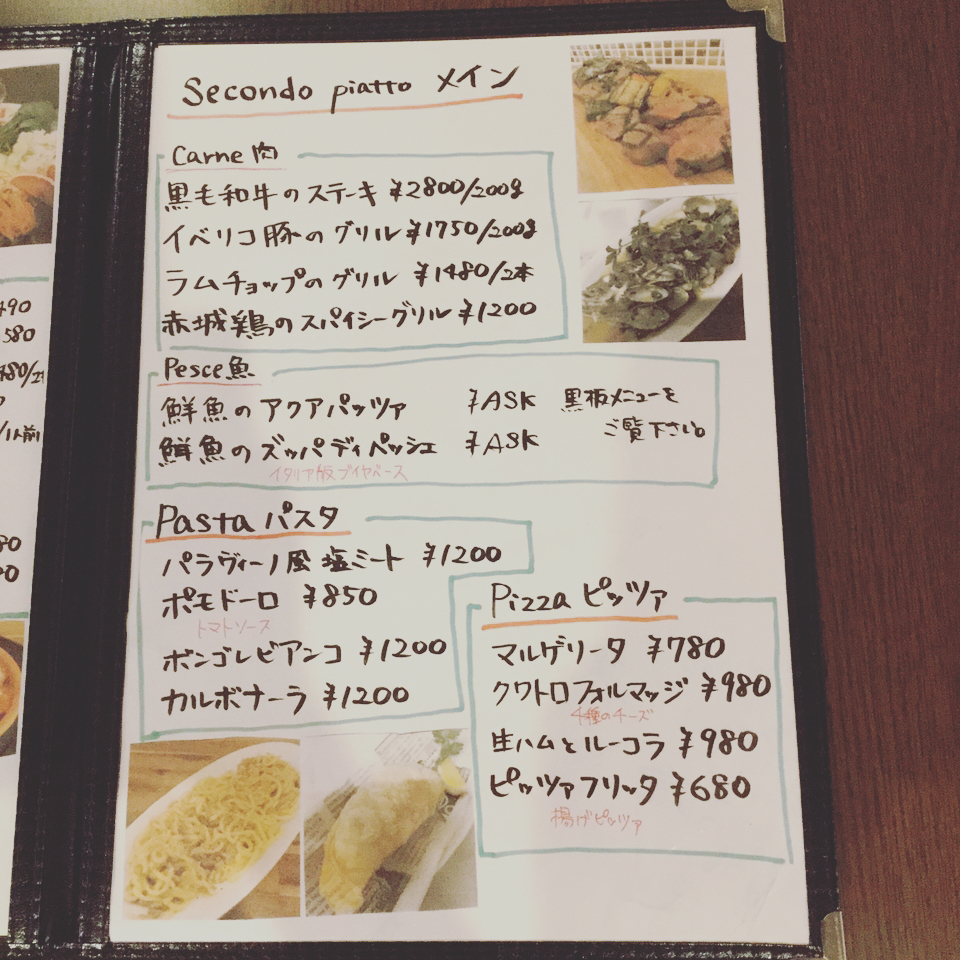 Secondo piatto メイン
Carne 肉
黒毛和牛のステーキ ¥2800/200g
イベリコ豚のグリル ¥1750/200g
ラムチョップのグリル ¥1480/2本
赤城鶏のスパイシーグリル ¥1200
Pesce 魚
鮮魚のアクアパッツァ ¥ASK 黒板メニューを
ご覧下さい。
鮮魚のズッパディペッシェ ¥ASK
イタリア版ブイヤベース
Pasta パスタ
パラヴィーノ風 塩ミート ¥1200
ポモドーロ ¥850
トマトソース
ボンゴレビアンコ ¥1200
カルボナーラ ¥1200
Pizza ピッツァ
マルゲリータ ¥780
クワトロフォルマッジ ¥980
4種のチーズ
生ハムとルーコラ ¥980
ピッツァフリッタ ¥680
揚げピッツァ
490
580
480/2本
/1人前
80